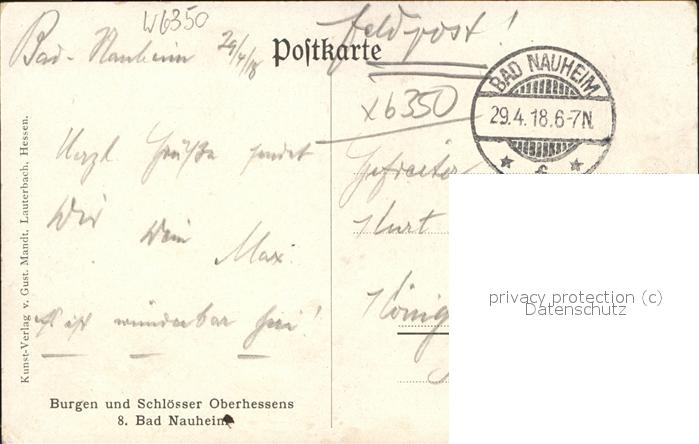 W6350
Bad-Nauheim 29/4/18
Postkarte
Feldpost!
x6350
BAD NAUHEIM
29.4.18.6-7N.
* c *
Herzl Grüße sendet
Dir
Dein
Max.
Es ist wunderbar hier!
Gefreiter
Kurt
König
privacy protection (c)
Datenschutz
Kunst-Verlag v. Gust. Mandt, Lauterbach, Hessen.
Burgen und Schlösser Oberhessens
8. Bad Nauheim